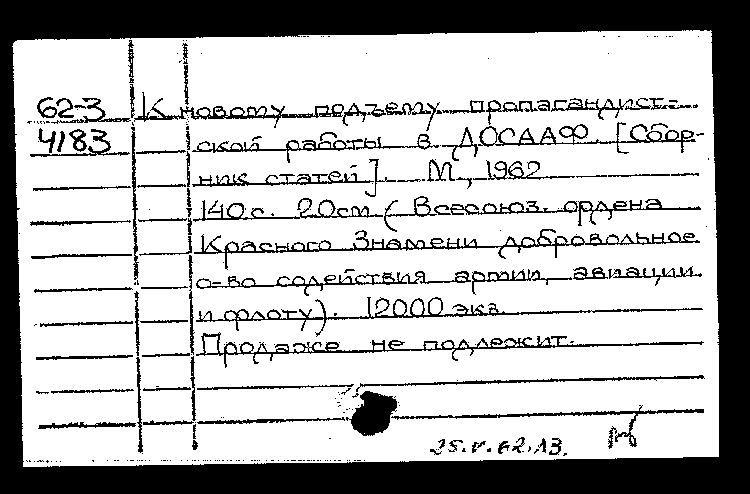 62-3 К новому подъему пропагандист-
4183 ской работы в ДОСААФ. [Сбор-
ник статей]. М., 1962
140 с. 20 см (Всесоюз. ордена
Красного Знамени добровольное
о-во содействия армии, авиации
и флоту). 12000 экз.
Продаже не подлежит.
25.V.62.ЛЗ.